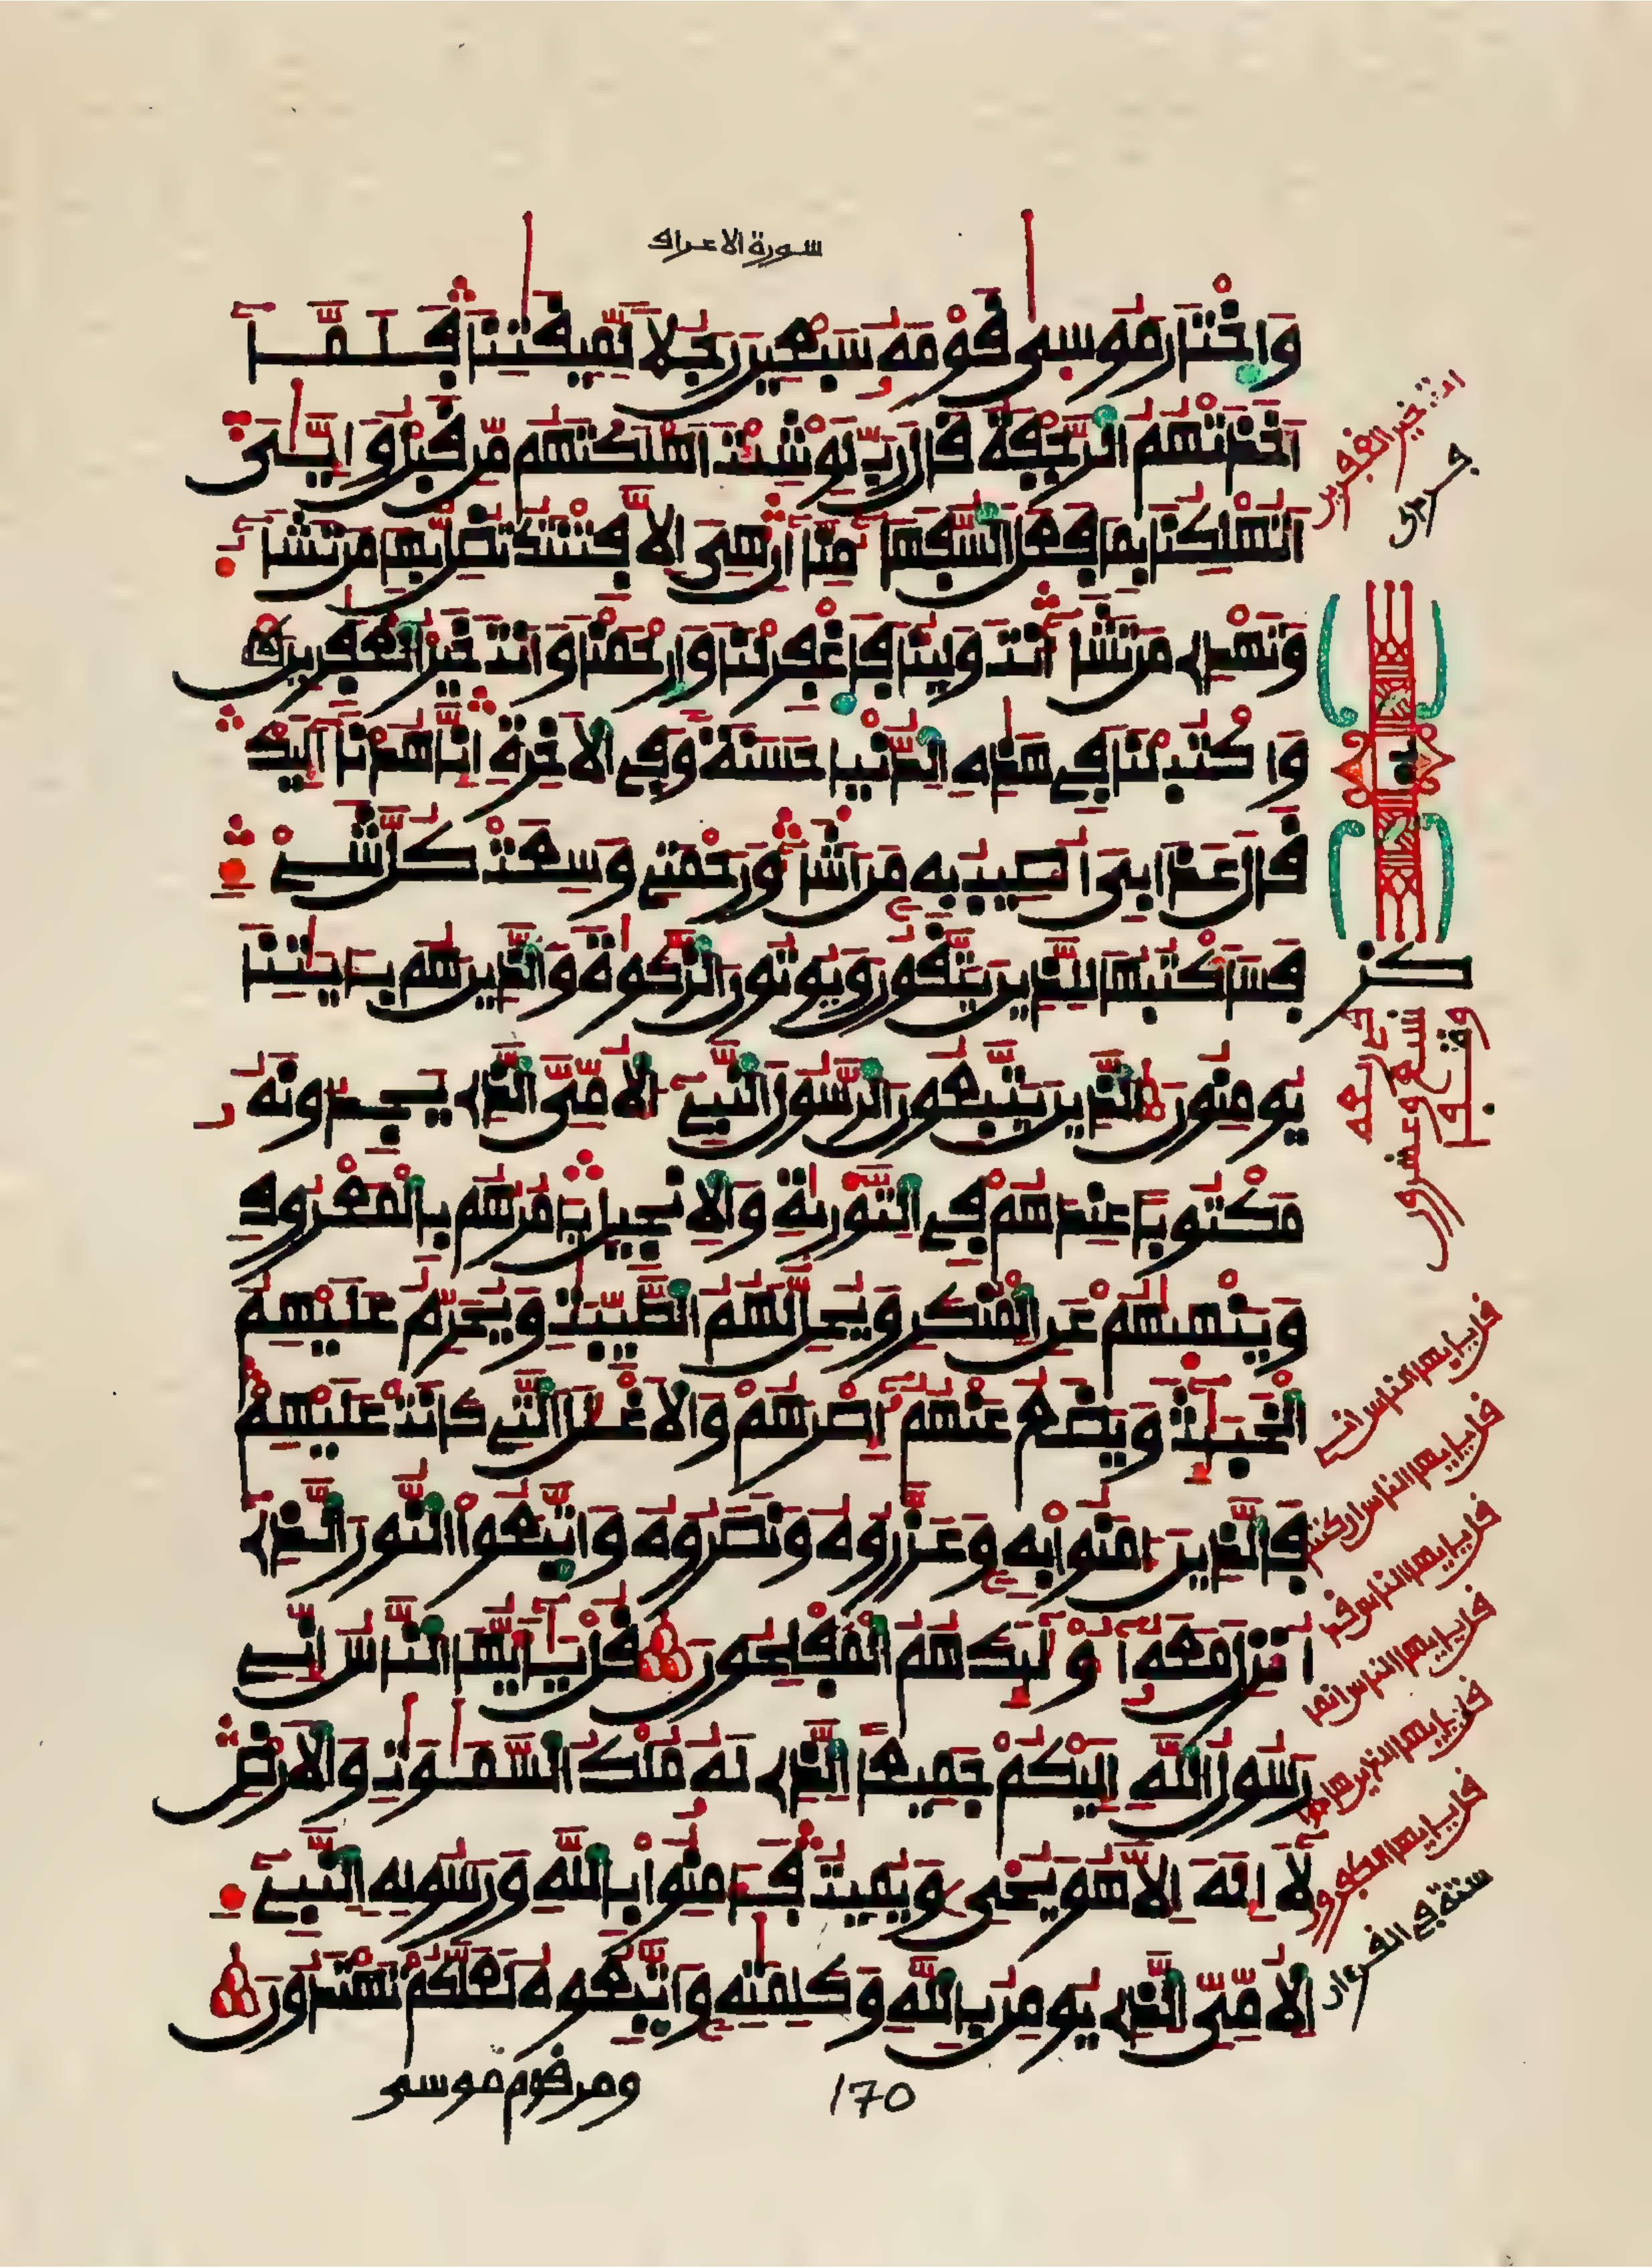 سورة الاعراف
وَاخْتَارَ مُوسىٰ قَوْمَهُۥ سَبْعِينَ رَجُلًا لِّمِيقَٰتِنَا فَلَمَّآ
أَخَذَتْهُمُ الرَّجْفَةُ قَالَ رَبِّ لَوْ شِئْتَ أَهْلَكْتَهُم مِّن قَبْلُ وَإِيَّٰىَ
أَتُهْلِكُنَا بِمَا فَعَلَ السُّفَهَآءُ مِنَّآ إِنْ هِىَ إِلَّا فِتْنَتُكَ تُضِلُّ بِهَا مَن تَشَآءُ
وَتَهْدِے مَن تَشَآءُ أَنتَ وَلِيُّنَا فَاغْفِرْ لَنَا وَارْحَمْنَا وَأَنتَ خَيْرُ الْغَٰفِرِينَ
وَاكْتُبْ لَنَا فِے هَٰذِهِ الدُّنْيَا حَسَنَةً وَفِے الْأَخِرَةِ إِنَّا هُدْنَآ إِلَيْكَ
قَالَ عَذَابِىَ أُصِيبُ بِهِۦ مَنْ أَشَآءُ وَرَحْمَتِے وَسِعَتْ كُلَّ شَےْءٍ
فَسَأَكْتُبُهَا لِلَّذِينَ يَتَّقُونَ وَيُوتُونَ الزَّكَوٰةَ وَالَّذِينَ هُم بِـَٔايَٰتِنَا
يُومِنُونَ الَّذِينَ يَتَّبِعُونَ الرَّسُولَ النَّبِےٓءَ الْأُمِّىَّ الَّذِے يَجِدُونَهُۥ
مَكْتُوبًا عِندَهُمْ فِے التَّوْرَىٰةِ وَالْإِنجِيلِ يَامُرُهُم بِالْمَعْرُوفِ
وَيَنْهَىٰهُمْ عَنِ الْمُنكَرِ وَيُحِلُّ لَهُمُ الطَّيِّبَٰتِ وَيُحَرِّمُ عَلَيْهِمُ
الْخَبَٰٓئِثَ وَيَضَعُ عَنْهُمُۥٓ إِصْرَهُمْ وَالْأَغْلَٰلَ الَّتِے كَانَتْ عَلَيْهِمْ
فَالَّذِينَ ءَامَنُوا بِهِۦ وَعَزَّرُوهُ وَنَصَرُوهُ وَاتَّبَعُوا النُّورَ الَّذِےٓ
أُنزِلَ مَعَهُۥٓ أُوْلَٰٓئِكَ هُمُ الْمُفْلِحُونَ قُلْ يَٰٓأَيُّهَا النَّاسُ إِنِّے
رَسُولُ اللَّهِ إِلَيْكُمْ جَمِيعًا الَّذِے لَهُۥ مُلْكُ السَّمَٰوَٰتِ وَالْأَرْضِ
لَآ إِلَٰهَ إِلَّا هُوَ يُحْىِۦ وَيُمِيتُ فَـَٔامِنُوا بِاللَّهِ وَرَسُولِهِ النَّبِےٓءِ
الْأُمِّىِّ الَّذِے يُومِنُ بِاللَّهِ وَكَلِمَٰتِهِۦ وَاتَّبِعُوهُ لَعَلَّكُمْ تَهْتَدُونَ
ومن قوم موسى
170
خير الغفرين
كز
قل يايها الناس اني
قل يايها الناس ان كنتم
قل يايها الناس قد
قل يايها الناس انما
قل يايها الذين هادوا
قل يايها الكفرون
ستة في القرءان